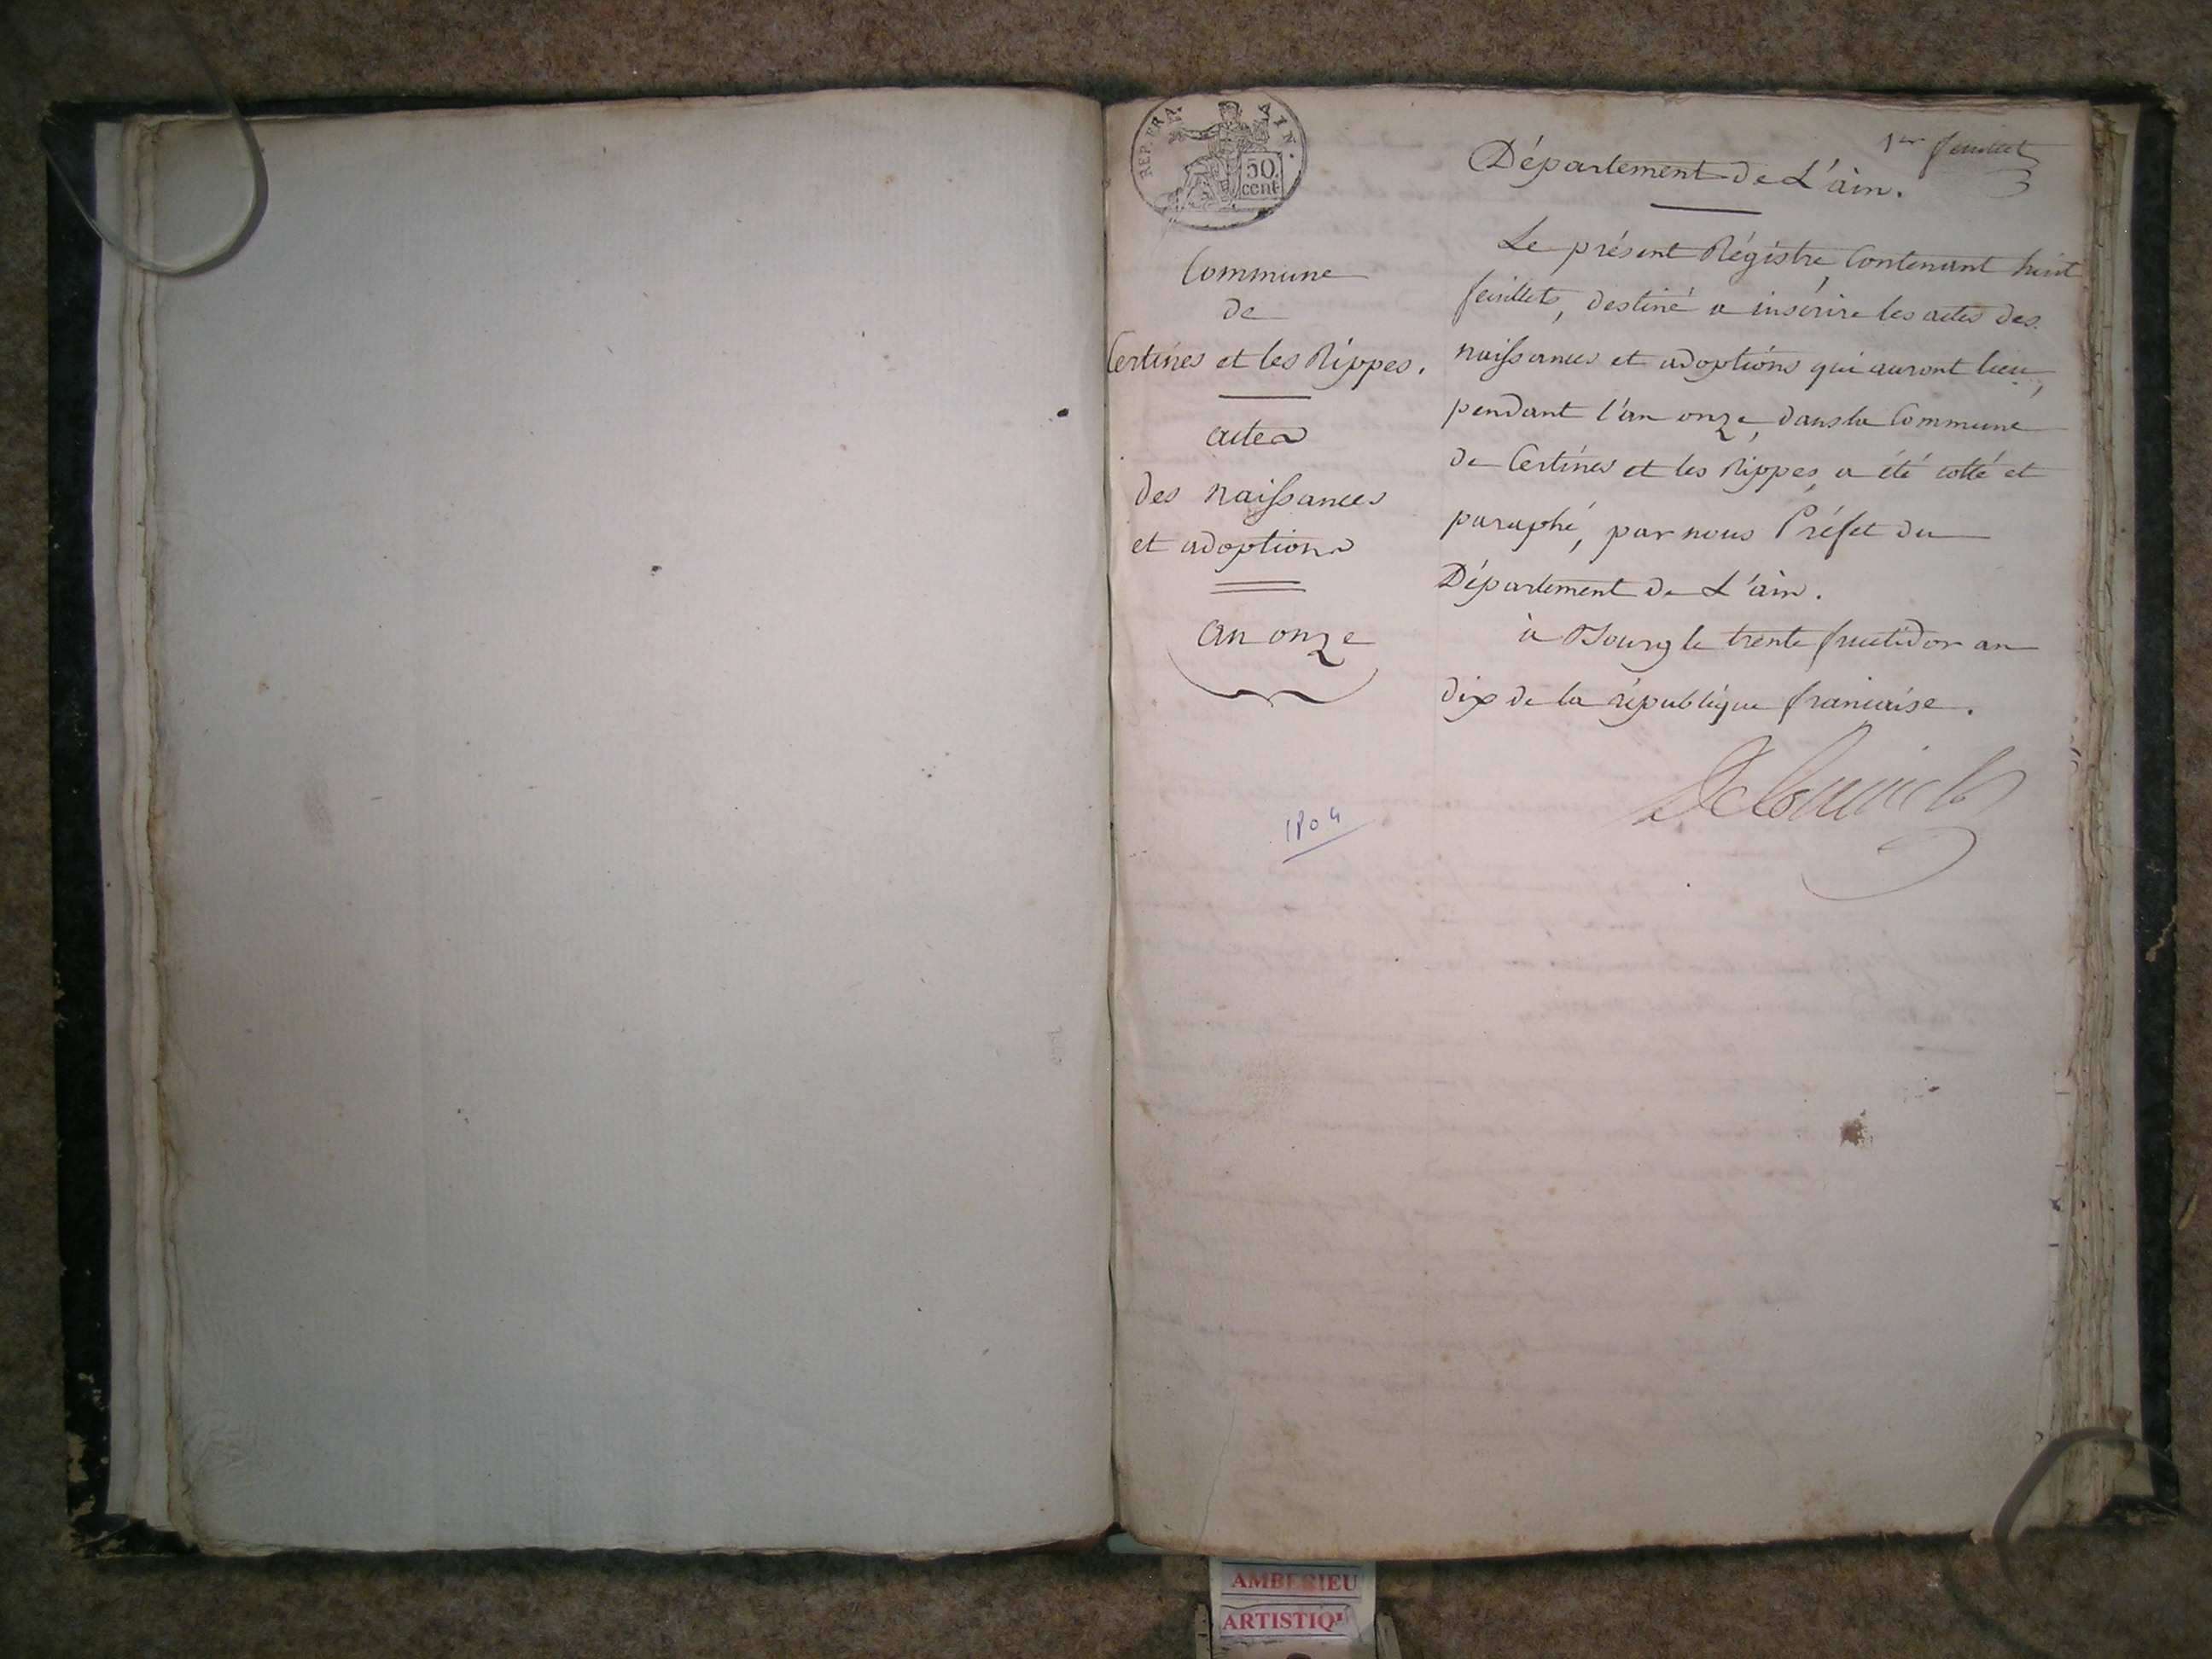 REP. FRA. AIN.
50
cent
1er feuillet
Département de L'ain.
Commune
de
Certines et les Rippes.
actes
des naissances
et adoptions
an onze
1804
Le présent Régistre, Contenant huit
feuillets, destiné a inscrire les actes des
naissances et adoptions qui auront lieu,
pendant l'an onze, dans la Commune
de Certines et les Rippes, a été cotté et
paraphé, par nous Préfet du
Département de L'ain.
à Bourg le trente fructidor an
dix de la république francaise.
AMBERIEU
ARTISTIQU